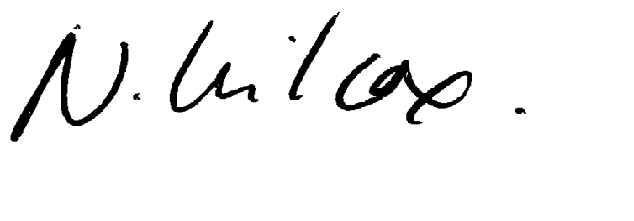 N. Wilcox.